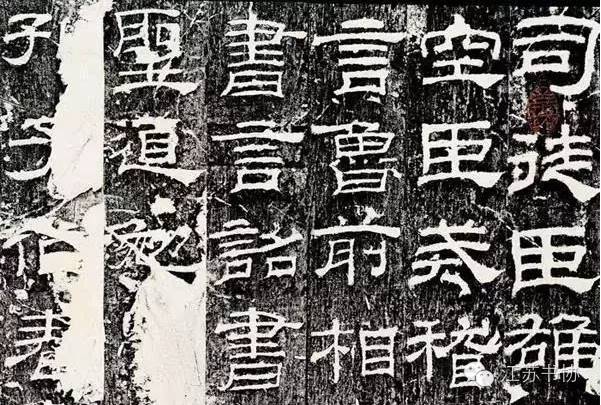 司徒臣雄
空臣戒稽
言魯前相
書言詔書
聖道勉
孔子作春
江苏书协